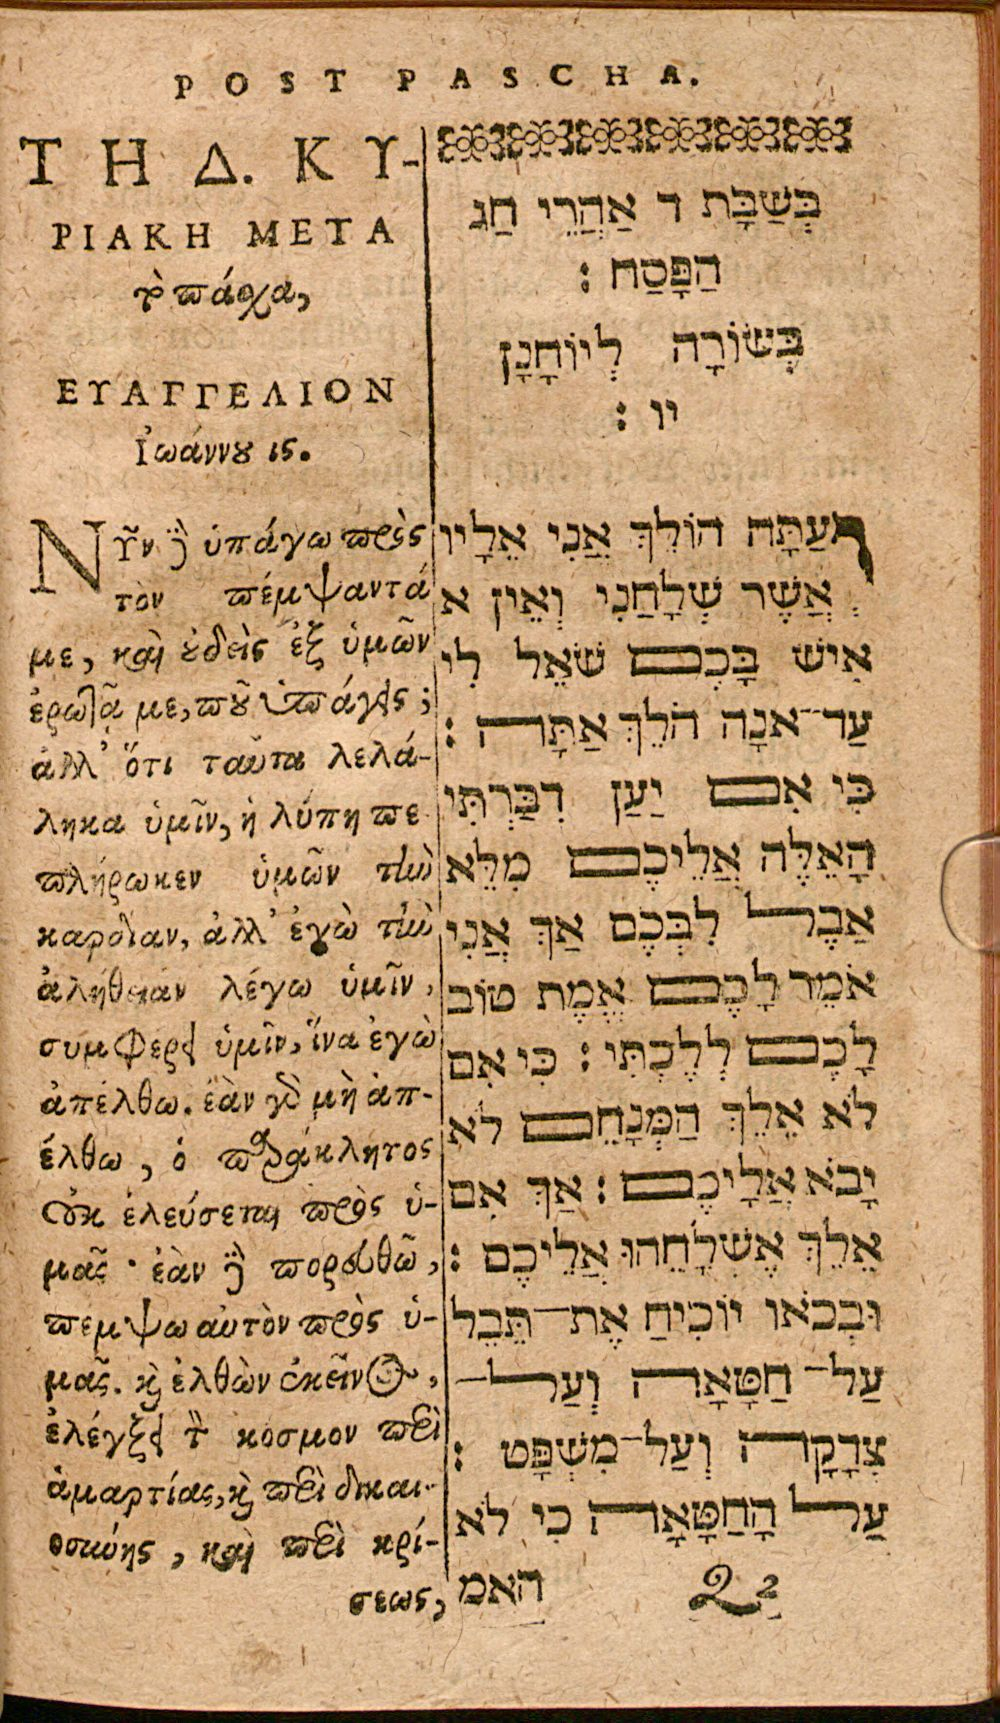 POST PASCHA.
ΤΗ Δ. ΚΥ-
ΡΙΑΚΗ ΜΕΤΑ
τὸ πάσχα,
ΕΥΑΓΓΕΛΙΟΝ
Ἰωάννου ις.
ΝΥ͂ν δὲ ὑπάγω πρὸς
τὸν πέμψαντά
με, καὶ οὐδεὶς ἐξ ὑμῶν
ἐρωτᾷ με, ποῦ ὑπάγεις;
ἀλλ' ὅτι ταῦτα λελά-
ληκα ὑμῖν, ἡ λύπη πε
πλήρωκεν ὑμῶν τὴν
καρδίαν, ἀλλ' ἐγὼ τὴν
ἀλήθειαν λέγω ὑμῖν,
συμφέρει ὑμῖν, ἵνα ἐγὼ
ἀπέλθω. ἐὰν γὰρ μὴ ἀπ-
έλθω, ὁ παράκλητος
οὐκ ἐλεύσεται πρὸς ὑ-
μᾶς· ἐὰν δὲ πορευθῶ,
πεμψω αὐτὸν πρὸς ὑ-
μᾶς. καὶ ἐλθὼν ἐκεῖνος,
ἐλέγξει τὸν κόσμον περὶ
ἁμαρτίας, καὶ περὶ δικαι-
οσύνης, καὶ περὶ κρί-
σεως,
בְּשַׁבָּת ד אַהֲרֵי חַג
הַפָּסַח :
בְּשׂוֹרָה לְיוֹחָנָן
יו :
וְעַתָּה הוֹלֵךְ אֲנִי אֵלָיו
אֲשֶׁר שְׁלָחַנִי וְאֵין א
אִישׁ בָּכֶם שֹׁאֵל לִי
עַד־אנָה הֹלֵךְ אַתָּה :
כִּי אִם יַעַן דִבַּרְתִּי
הָאֵלֶּה אֲלֵיכֶם מִלֵּא
אֵבֶל לִבְּכֶם אַךְ אֲנִי
אֹמֵר לָכֶם אֱמֶת טוֹב
לָכֶם לְלֶכְתִּי : כִּי אִם
לֹא אֵלֵךְ הַמְּנָחֵם לֹא
יָבֹא אֲלָיכֶם : אַךְ אִם
אֵלֵךְ אֶשְׁלָחֵהוּ אֲלֵיכֶם :
וּבְבֹאוּ יוֹכִיחַ אֶת־תֵּבֵל
עַל־חַטָּאָה וְעַל־
צְדָקָה וְעַל־מִשְׁפָּט :
עַל הָחַטָּאָה כִּי לֹא
הֵאמִ
Q 2